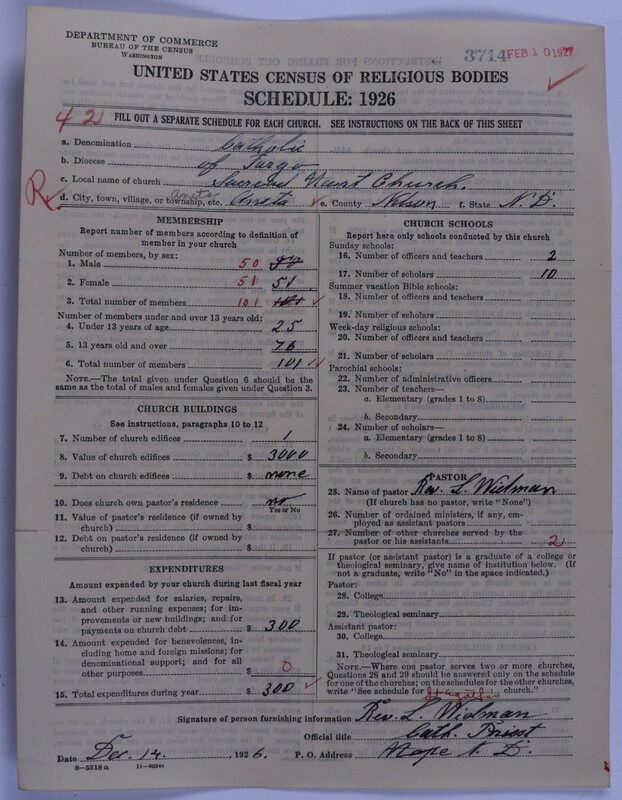 DEPARTMENT OF COMMERCE
BUREAU OF THE CENSUS
WASHINGTON
3714 FEB 10 1927
UNITED STATES CENSUS OF RELIGIOUS BODIES
SCHEDULE: 1926
42
FILL OUT A SEPARATE SCHEDULE FOR EACH CHURCH. SEE INSTRUCTIONS ON THE BACK OF THIS SHEET
a. Denomination Catholic
b. Diocese of Fargo
c. Local name of church Sacred Heart Church.
R
d. City, town, village, or township, etc. Aneta Aneta e. County Nelson f. State N. D.
MEMBERSHIP
Report number of members according to definition of member in your church
Number of members, by sex:
1. Male 50
2. Female 51 51
3. Total number of members 101 101
Number of members under and over 13 years old:
4. Under 13 years of age 25
5. 13 years old and over 76
6. Total number of members 101
NOTE.—The total given under Question 6 should be the same as the total of males and females given under Question 3.
CHURCH BUILDINGS
See instructions, paragraphs 10 to 12
7. Number of church edifices 1
8. Value of church edifices $ 3000
9. Debt on church edifices $ none
10. Does church own pastor's residence no
Yes or No
11. Value of pastor's residence (if owned by church) $
12. Debt on pastor's residence (if owned by church) $
EXPENDITURES
Amount expended by your church during last fiscal year
13. Amount expended for salaries, repairs, and other running expenses; for improvements or new buildings; and for payments on church debt $ 300
14. Amount expended for benevolences, including home and foreign missions; for denominational support; and for all other purposes $ 0
15. Total expenditures during year $ 300
CHURCH SCHOOLS
Report here only schools conducted by this church
Sunday schools:
16. Number of officers and teachers 2
17. Number of scholars 10
Summer vacation Bible schools:
18. Number of officers and teachers
19. Number of scholars
Week-day religious schools:
20. Number of officers and teachers
21. Number of scholars
Parochial schools:
22. Number of administrative officers
23. Number of teachers—
a. Elementary (grades 1 to 8)
b. Secondary
24. Number of scholars—
a. Elementary (grades 1 to 8)
b. Secondary
PASTOR
25. Name of pastor Rev. L. Widman
(If church has no pastor, write "None")
26. Number of ordained ministers, if any, employed as assistant pastors
27. Number of other churches served by the pastor or his assistants 2
If pastor (or assistant pastor) is a graduate of a college or theological seminary, give name of institution below. (If not a graduate, write "No" in the space indicated.)
Pastor:
28. College
29. Theological seminary
Assistant pastor:
30. College
31. Theological seminary
NOTE.—Where one pastor serves two or more churches, Questions 28 and 29 should be answered only on the schedule for one of the churches; on the schedules for the other churches, write "See schedule for St Agatha's church."
Signature of person furnishing information Rev. L. Widman
Official title Cath. Priest
Date Dec. 14. 1926. P. O. Address Hope N. D.
8-5518a